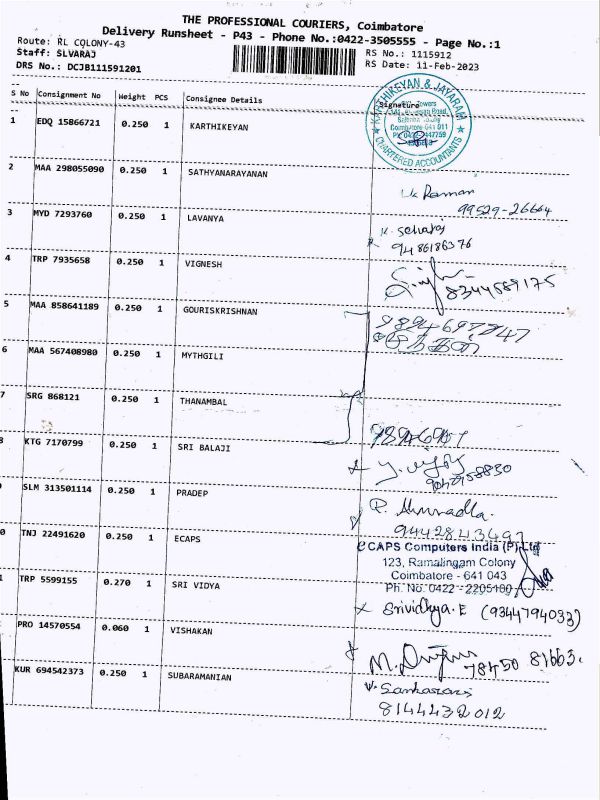 THE PROFESSIONAL COURIERS, Coimbatore
Delivery Runsheet - P43 - Phone No.:0422-3505555 - Page No.:1
Route: RL COLONY-43
Staff: SLVARAJ
DRS No.: DCJB111591201
RS No.: 1115912
RS Date: 11-Feb-2023
S No Consignment No Weight PCS Consignee Details Signature
KARTHIKEYAN & JAYARAM
Coimbatore-641 011
CHARTERED ACCOUNTANTS
1 EDQ 15866721 0.250 1 KARTHIKEYAN
2 MAA 298055090 0.250 1 SATHYANARAYANAN
Raman
99529-26664
3 MYD 7293760 0.250 1 LAVANYA
K. Selvaraj
9486186376
4 TRP 7935658 0.250 1 VIGNESH
8344589175
5 MAA 858641189 0.250 1 GOURISKRISHNAN
6 MAA 567408980 0.250 1 MYTHGILI
7 SRG 868121 0.250 1 THANAMBAL
8 KTG 7170799 0.250 1 SRI BALAJI
SLM 313501114 0.250 1 PRADEP
9442843497
0 TNJ 22491620 0.250 1 ECAPS
eCAPS Computers India (P) Ltd
123, Ramalingam Colony
Coimbatore - 641 043
Ph. No. 0422 - 2205100
1 TRP 5599155 0.270 1 SRI VIDYA
Srividhya.E (9344794033)
PRO 14570554 0.060 1 VISHAKAN
78450 81663.
KUR 694542373 0.250 1 SUBARAMANIAN
V. Sankaran
8144432012